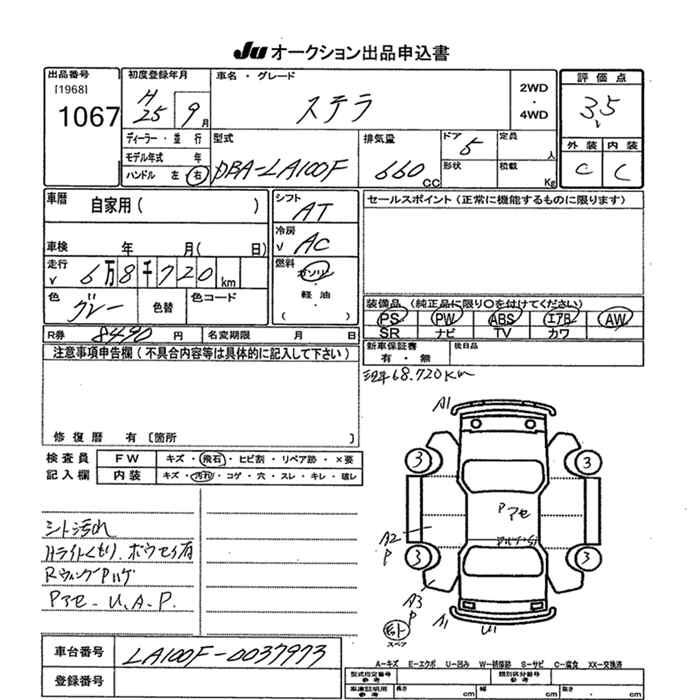 Ju オークション出品申込書
出品番号 初度登録年月 車名・グレード 2WD・4WD 評価点
[1968]
1067 H25 9月 ステラ 3.5
ディーラー・並行 型式 排気量 ドア 5 定員 人 外装 内装
モデル年式 年 形状 積載 Kg
ハンドル 左 右 DBA-LA100F 660 CC C C
車歴 自家用( ) シフト AT セールスポイント(正常に機能するものに限ります)
車検 年 月( 日) 冷房 AC
走行 6万8千720km 燃料 ガソリン・軽油・( )
色 グレー 色替 色コード
装備品 (純正品に限り○を付けてください)
PS PW ABS エアB AW
SR ナビ TV カワ
R券 8490 円 名変期限 月 日
新車保証書 有・無 後日品
注意事項申告欄(不具合内容等は具体的に記入して下さい)
68.720Km
修復歴 有〔箇所 〕
検査員記入欄 FW キズ・飛石・ヒビ割・リペア跡・×要
内装 キズ・汚れ・コゲ・穴・スレ・キレ・破レ
シト汚れ
Hライトくもり、ボウセイ有
RウィングPハゲ
Pアセ-U.A.P.
A1
3 3
P アセ
A2 P
3 3
A3 P
A1 U1
スペア
車台番号 LA100F-0037973
登録番号
A-キズ E-エクボ U-凹み W-補修跡 S-サビ C-腐食 XX-交換済
型式指定番号 参考 類別区分番号 参考
車庫証明用 参考 長さ cm 幅 cm 高さ cm